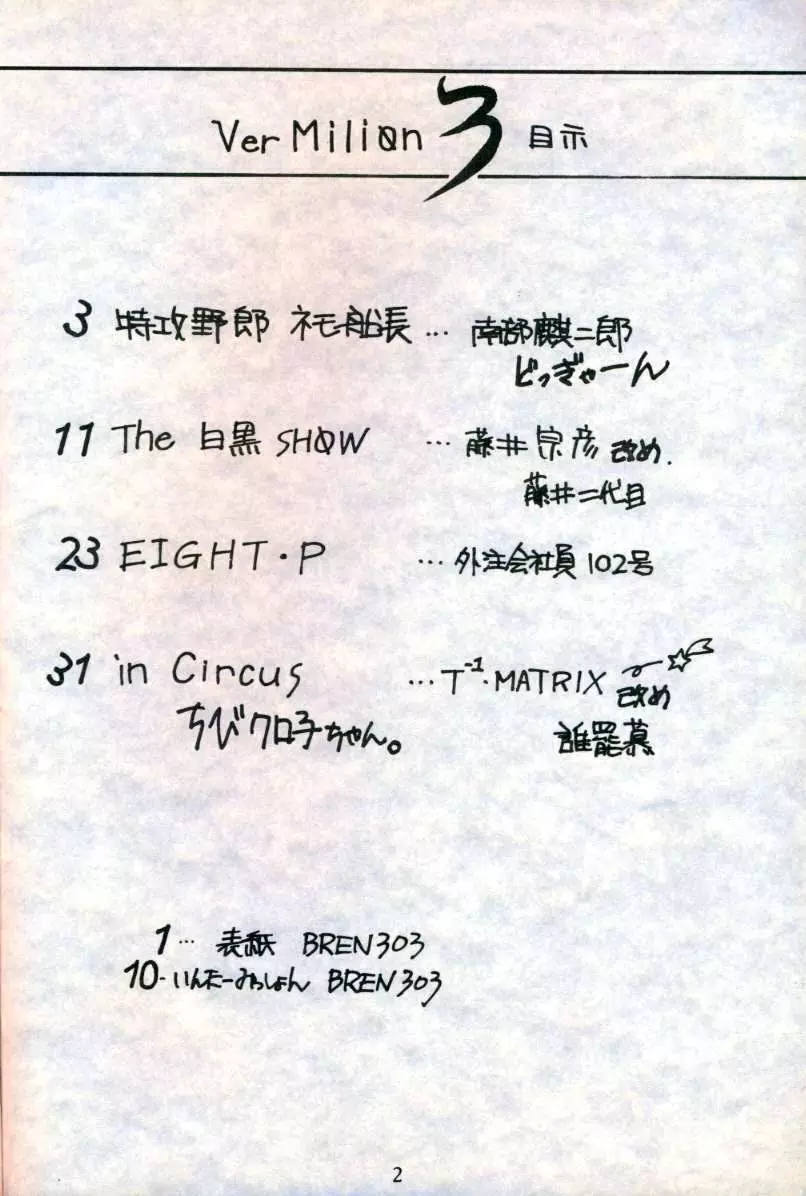 Ver Miliøn 3 目示
3 特攻野郎 ネモ船長 … 南部麒二郎
どっぎゃーん
11 The 白黒 SHØW … 藤井宗彦 改め.
藤井二代目
23 EIGHT・P … 外注会社員 102号
31 in Circus … T⁻¹・MATRIX 改め
ちびクロ子ちゃん。 誰罷慕
1 … 表紙 BREN303
10 ・いんたーみっしょん BREN303
2